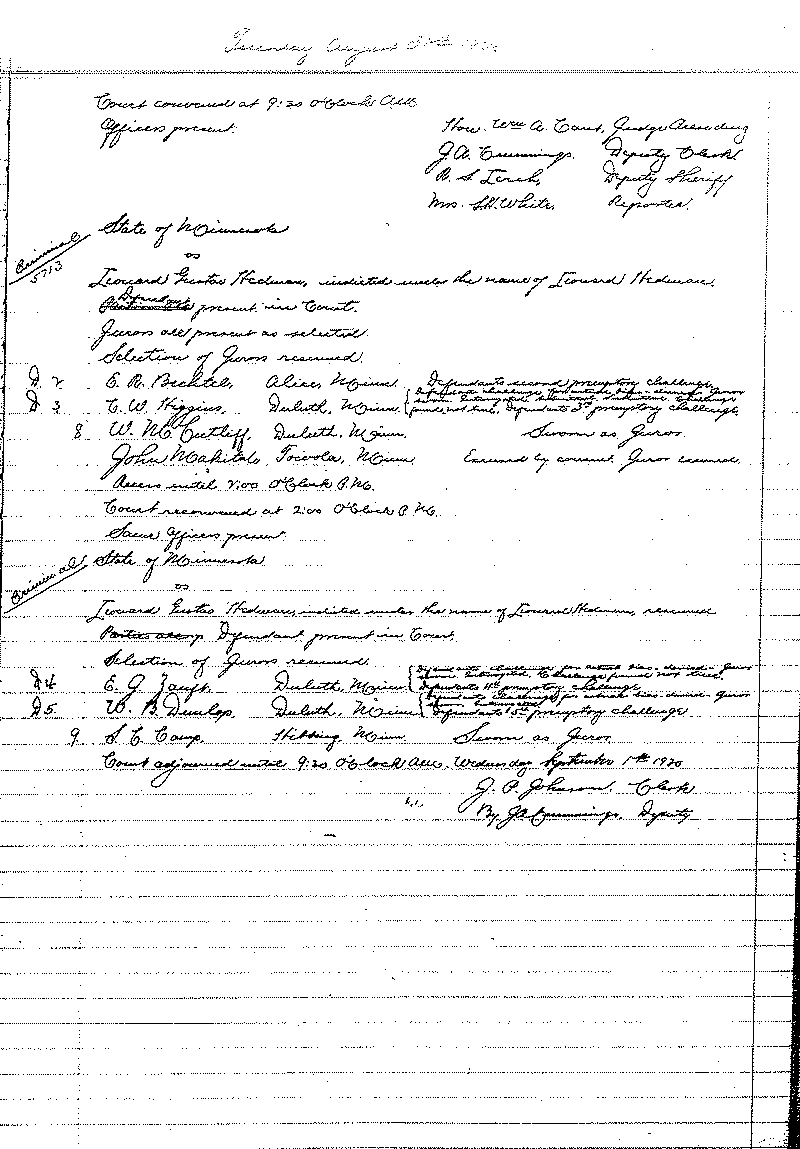 Tuesday August 31st 1920
Court convened at 9:30 O'Clock A.M.
Officers present. Hon. Wm A. Cant, Judge Presiding
J.A. Cummings. Deputy Clerk
Deputy Sheriff
Mrs. S.R. White. Reporter.
Criminal
5713
State of Minnesota
vs
Leonard Gustav Hedman, indicted under the name of Leonard Hedman.
Defendant present in Court.
Jurors all present as selected.
Selection of Jurors resumed.
D. 2 E. R. Bechtel, Alice, Minn. Defendants second preemptory challenge
D 3 C. W. Higgins, Duluth, Minn. found not true, Defendants 3rd preemptory challenge
8 W. McCutliff, Duluth, Minn. Sworn as Juror.
John Makitalo, Toivola, Minn Excused by consent. Juror excused.
Recess until 2:00 O'Clock P.M.
Court reconvened at 2:00 O'Clock P.M.
Same Officers present.
Criminal
State of Minnesota
vs
Leonard Gustav Hedman, indicted under the name of Leonard Hedman, resumed
Defendant present in Court.
Selection of Jurors resumed.
Defendants challenge for actual bias - denied - Juror
D4 E. G. Duluth, Minn. defendants 4th preemptory challenge
D5. W. B. Dunlop, Duluth, Minn defendants 5th preemptory challenge
9. S. C. Camp Hibbing Minn Sworn as Juror
Court adjourned until 9:30 O'Clock A.M. Wednesday September 1st 1920
J. P. Johnson, Clerk
By JA Cummings, Deputy